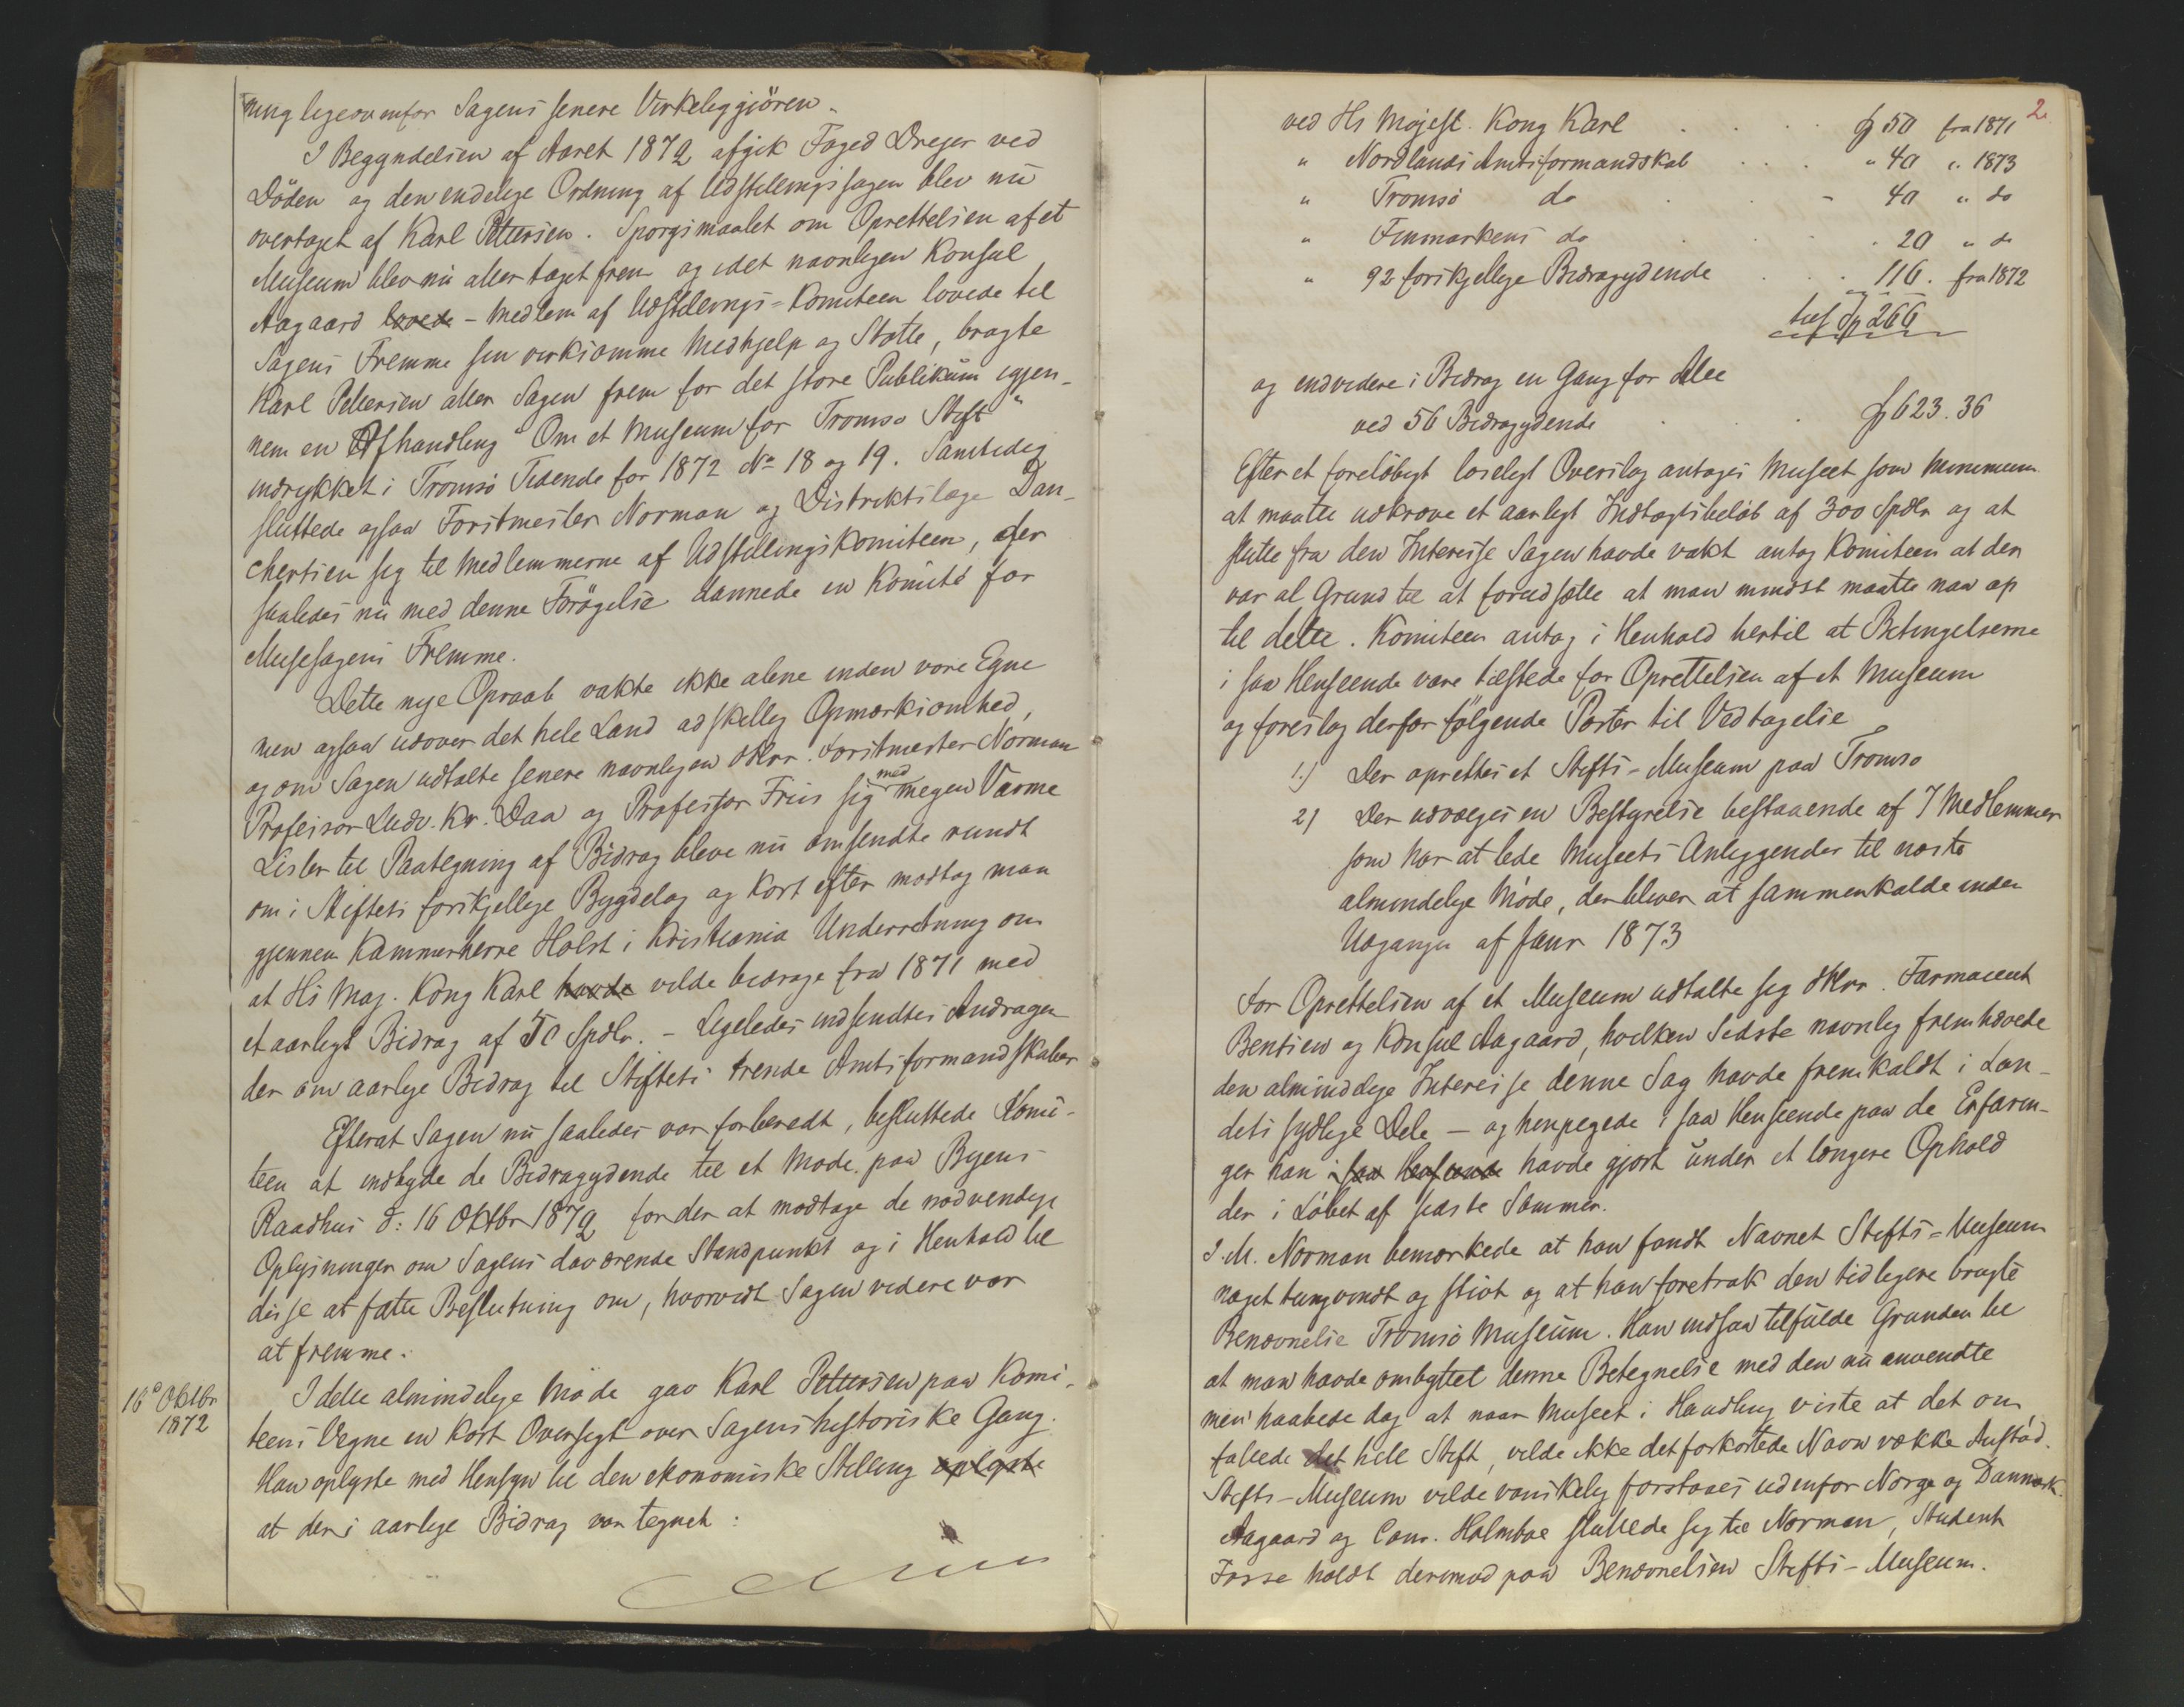 ning ligeovenfor Sagens senere Virkeliggjören.
I Begyndelsen af Aaret 1872 afgik Foged Dreyer ved
Döden og den endelige Ordning af Udstillingssagen blev nu
overtaget af Karl Pettersen. Sporgsmaalet om Oprettelsen af et
Museum blev nu atter taget frem og idet navnligen Konsul
Aagaard lovede - Medlem af Udstillings-Komiteen lovede til
Sagens Fremme sin virksomme Medhjelp og Stötte, bragte
Karl Pettersen atter Sagen frem for det store Publikum igjen-
nem en Afhandling "Om et Museum for Tromsö Stift"
indrykket i Tromsö Tidende for 1872 No 18 og 19. Samtidig
sluttede ogsaa Forstmester Norman og Distriktslæge Dan-
chertsen sig til Medlemmerne af Udstillingskomiteen, der
saaledes nu med denne Forögelse dannede en Komité for
Musesagens Fremme.
Dette nye Opraab vakte ikke alene inden vore Egne
men ogsaa udover det hele Land adskillig Opmærksomhed,
og om Sagen udtalte senere navnligen DHrr. Forstmester Norman
Professor Ludv. Kr. Daa og Professor Friis sig med megen Varme
Lister til Paategning af Bidrag bleve nu omsendte rundt
om i Stiftets forskjellige Bygdelag og kort efter modtog man
gjennem Kammerherre Holst i Kristiania Underretning om
at Hs Maj. Kong Karl havde vilde bidrage fra 1871 med
et aarligt Bidrag af 50 Spdlr. - Ligeledes indsendtes Andragen
der om aarlige Bidrag til Stiftets trende Amtsformandskaber
Efterat Sagen nu saaledes var forberedt, besluttede Komi-
teen at indbyde de Bidragydende til et Møde paa Byens
Raadhus d: 16 Oktbr 1872 for der at modtage de nødvendige
Oplysninger om Sagens daværende Standpunkt og i Henhold til
disse at fatte Beslutning om, hvorvidt Sagen videre var
at fremme.
16de Oktbr
1872
I dette almindelige Møde gav Karl Pettersen paa Komi-
teens Vegne en kort Oversigt over Sagens historiske Gang.
Han oplyste med Hensyn til den ekonomiske Stilling oplyste
at der i aarlige Bidrag var tegnet:
2.
ved Hs Majest. Kong Karl . . . . 50 fra 1871
" Nordlands Amtsformandskab . . . " 40 " 1873
" Tromsö do . . . 40 " do
" Finmarkens do . . . 20 " do
" 92 forskjellige Bidragydende . . . 116. fra 1872
tils Sp 266
og endvidere i Bidrag en Gang for Alle
ved 56 Bidragydende . . . 623. 36
Efter et foreløbigt løseligt Overslag antages Museet som Minimum
at maatte udkræve et aarligt Indtægtsbeløb af 300 Spdlr og at
slutte fra den Interesse Sagen havde vakt antog Komiteen at der
var al Grund til at forudsætte at man mindst maatte naa op
til dette. Komiteen antog i Henhold hertil at Betingelserne
i saa Henseende være tilstede for Oprettelsen af et Museum
og foreslog derfor følgende Poster til Vedtagelse
1.) Der oprettes et Stifts-Museum paa Tromsø
2) Der udvælges en Bestyrelse bestaaende af 7 Medlemmer
som har at lede Museets Anliggender til næste
almindelige Møde, der bliver at sammenkalde inden
Udgangen af Janr 1873
For Oprettelsen af et Museum udtalte sig DHrr. Farmaceut
Bentsen og Konsul Aagaard, hvilken Sidste navnlig fremhævede
den almindelige Interesse denne Sag havde fremkaldt i Lan-
dets sydlige Dele - og henpegede i saa Henseende paa de Erfarin-
ger han i saa Henseende havde gjort under et længere Ophold
der i Løbet af sidste Sommer.
J. M. Norman bemærkede at han fandt Navnet Stifts-Museum
noget tungvindt og stivt og at han foretrak den tidligere brugte
Benævnelse Tromsö Museum. Han indsaa tilfulde Grunden til
at man havde ombyttet denne Betegnelse med den nu anvendte
men haabede dog at naar Museet i Handling viste at det om
fattede det hele Stift, vilde ikke det forkortede Navn vække Anstød.
Stifts-Museum vilde vanskelig forstaaes udenfor Norge og Danmark.
Aagaard og Cons. Holmboe sluttede sig til Norman, Student
Fosse holdt derimod paa Benævnelsen Stifts-Museum.